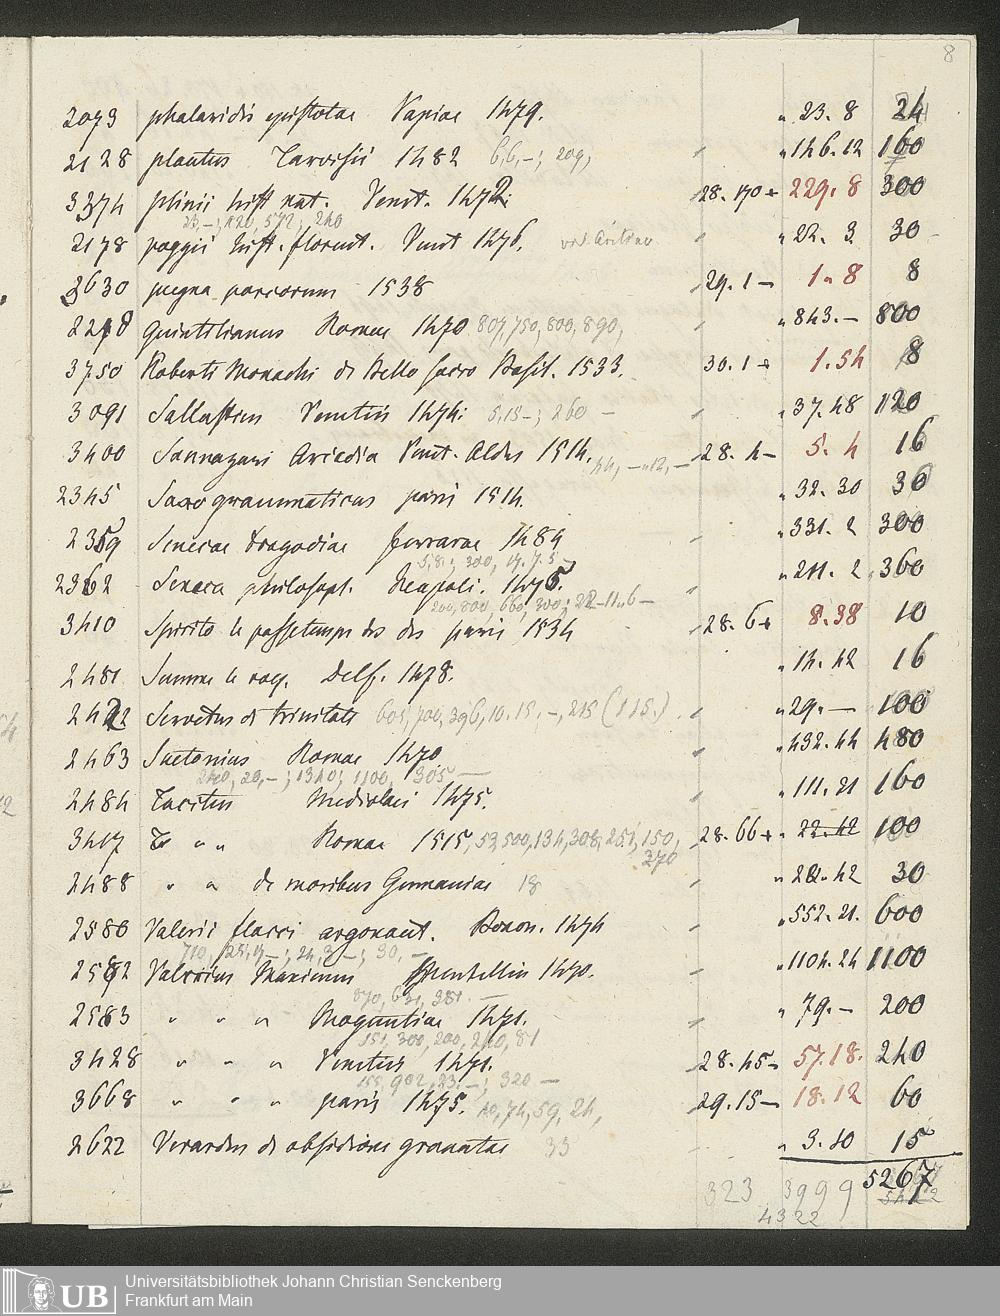 8
2093 phalaridis epistolae Papiae 1479. " 23. 8 24
2128 plautus Tarvisii 1482 6,6,-; 209, " 146. 12 160
3374 plinii hist nat. Venet. 1472. 28. 170 + 229. 8 300
23-; 120, 572; 240
2178 poggii hist. florent. Venet 1476. " 22. 3 30
2630 pugna porcorum 1538 29. 1 - 1 " 8 8
2218 Quintilianus Romae 1470 807, 750, 800, 890, " 843. - 800
3750 Roberti Monachi de Bello sacro Basil. 1533. 30. 1 + 1. 54 8
3091 Sallustius Venetiis 1474. 5,15-; 260 - " 37. 48 120
3400 Sannazari Arcadia Venet. Aldus 1514. 28. 4 - 5. 4 16
2345 Saxo grammaticus paris 1514. " 32. 30 36
2359 Senecae tragodiae ferrarae 1484 " 331. 2 300
2362 Seneca philosoph. Neapoli. 1475. " 211. 2 360
200, 800, 660, 300; 22-11,6 -
3410 Spirito le passetemps des des paris 1534 28. 6 + 8. 38 10
2481 Summa le roy. Delf. 1478. " 14. 42 16
2422 Servetus de trinitate 605, 700, 396, 10. 15. -, 215 (115.) " 29. - 100
2463 Suetonius Romae 1470. " 432. 44 480
240, 20, -; 1340; 1100, 305 -
2484 Tacitus Mediolani 1475. " 111. 21 160
3417 " " Romae 1515, 53,500,134,308,251,150, 28. 66 + " 22. 42 100
370
2488 " " de moribus Germaniae 18 " 22. 42 30
2580 Valerii flacci argonaut. Bonon. 1474 " 552. 21. 600
2582 Valerius Maximus 1470. " 1104. 24 1100
870, 621, 381. -
2583 " " " Moguntiae 1471. " 79. - 200
151, 300, 200, 240, 81
3428 " " " Venetiis 1471. 28. 45 - 57. 18. 240
155, 902, 23, -; 320 -
3668 " " " paris 1475. 10, 74, 59, 24, 29. 15 - 18. 12 60
2622 Verardus de obsidione granatae 33 " 3. 10 15
5267
323 3999
4322
Universitätsbibliothek Johann Christian Senckenberg
Frankfurt am Main
UB